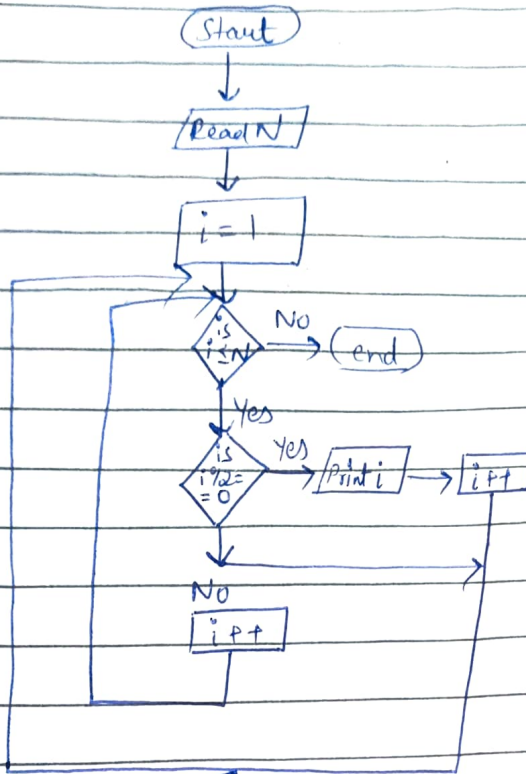 Start
Read N
i = 1
is
i ≤ N
No
end
Yes
is
i%2=
= 0
Yes
Print i
i++
No
i++